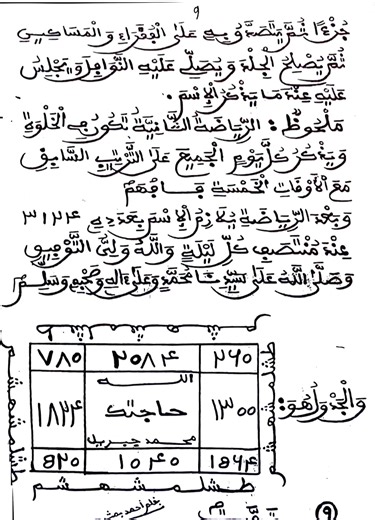 ٩
جُزْءًا ثُمَّ يَتَصَدَّقُ بِهِ عَلَى الْفُقَرَاءِ وَالْمَسَاكِينِ
ثُمَّ يُصْلِحُ الْجِلْدَ وَيُصَلِّي عَلَيْهِ النَّوَافِلَ وَيَجْلِسُ
عَلَيْهِ عِنْدَمَا يَذْكُرُ الْإِسْمَ.
مَلْحُوظٌ: الرِّيَاضَةُ الثَّانِيَةُ تَكُونُ فِي الْخَلْوَةِ
وَيَذْكُرُ كُلَّ يَوْمٍ الْجَمِيعَ عَلَى التَّرْتِيبِ السَّابِقِ
مَعَ الْأَوْقَاتِ الْخَمْسَةِ فَافْهَمْ
وَبَعْدَ الرِّيَاضَةِ يُلَازِمُ الْإِسْمَ بِعَدَدِهِ ٣١٢٤
عِنْدَ مُنْتَصِفِ كُلِّ لَيْلَةٍ وَاللَّهُ وَلِيُّ التَّوْفِيقِ
وَصَلَّى اللَّهُ عَلَى سَيِّدِنَا مُحَمَّدٍ وَعَلَى آلِهِ وَصَحْبِهِ وَسَلَّمَ
وَالْجَدْوَلُ هُوَ:
٢٦٠ ٢٠٨٤ ٧٨٥
الله
١٣٠٠ حاجتك ١٨٢٤
محمد جبريل
١٥٦٤ ١٠٤٠ ٥٢٠
طشلمشهشم
٩